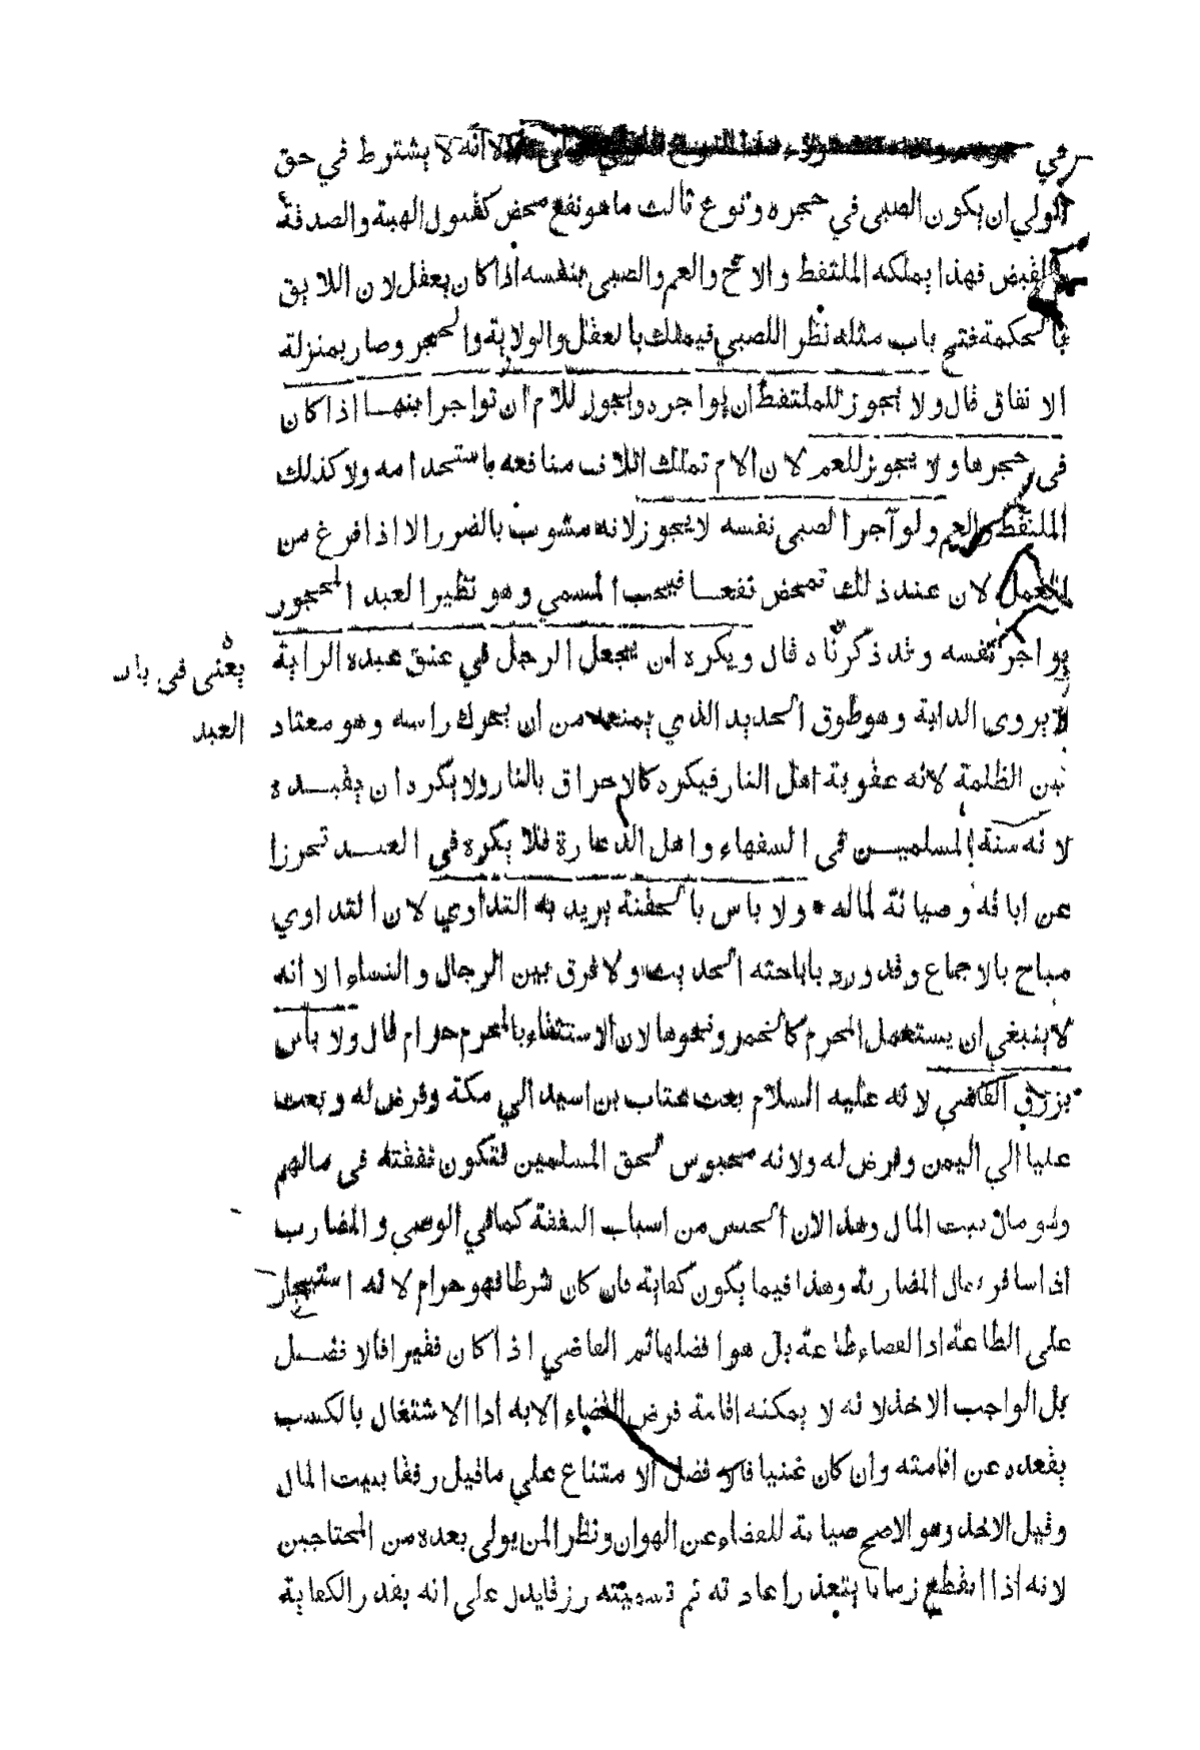 في الا انه لا يشترط في حق
الولي ان يكون الصبي في حجره ونوع ثالث ما هو نفع محض كقبول الهبة والصدقة
والقبض فهذا يملكه الملتقط والاخ والعم والصبي بنفسه اذا كان يعقل لان اللايق
بالحكمة فتح باب مثله نظر اللصبي فيملك بالعقل والولاية والحجر وصار بمنزلة
الانفاق قال ولا يجوز للملتقط ان يواجره ويجوز للام ان تواجر ابنها اذا كان
في حجرها ولا يجوز للعم لان الام تملك اتلاف منافعه باستخدامه ولا كذلك
الملتقط والعم ولو آجر الصبي نفسه لا يجوز لانه مشوب بالضرر الا اذا فرغ من
العمل لان عند ذلك تمحض نفعا فيجب المسمي وهو نظير العبد المحجور
يواجر نفسه وقد ذكرناه قال ويكره ان يجعل الرجل في عنق عبده الراية
يعني في باب
العبد
ويروى الداية وهو طوق الحديد الذي يمنعه من ان يحرك راسه وهو معتاد
بين الظلمة لانه عقوبة اهل النار فيكره كالاحراق بالنار ولا يكره ان يقيده
لانه سنة المسلمين في السفهاء واهل الدعارة فلا يكره في العبد تحرزا
عن اباقه وصيانة لماله ولا باس بالحقنة يريد به التداوي لان التداوي
مباح بالاجماع وقد ورد باباحته الحديث ولا فرق بين الرجال والنساء الا انه
لا ينبغي ان يستعمل المحرم كالخمر ونحوها لان الاستشفاء بالمحرم حرام قال ولا باس
برزق القاضي لانه عليه السلام بعث عتاب بن اسيد الي مكة وفرض له وبعث
عليا الي اليمن وفرض له ولانه محبوس لحق المسلمين فتكون نفقته في مالهم
وهو مال بيت المال وهذا لان الحبس من اسباب النفقة كما في الوصي والمضارب
اذا سافر بمال المضاربة وهذا فيما يكون كفاية فان كان شرطا فهو حرام لانه استيجار
على الطاعة اذ القضاء طاعة بل هو افضلها ثم القاضي اذا كان فقيرا فالافضل
بل الواجب الاخذ لانه لا يمكنه اقامة فرض القضاء الا به اذ الاشتغال بالكسب
يقعده عن اقامته وان كان غنيا فالافضل الامتناع علي ما قيل رفقا ببيت المال
وقيل الاخذ وهو الاصح صيانة للقضاء عن الهوان ونظرا لمن يولى بعده من المحتاجين
لانه اذا انقطع زمانا يتعذر اعادته ثم تسميته رزقا يدل على انه بقدر الكفاية